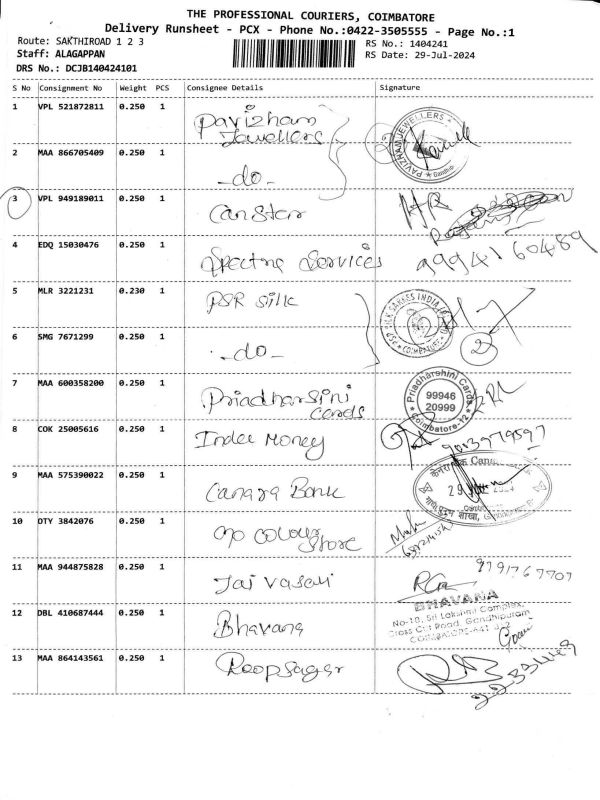 THE PROFESSIONAL COURIERS, COIMBATORE
Delivery Runsheet - PCX - Phone No.:0422-3505555 - Page No.:1
Route: SAKTHIROAD 1 2 3
RS No.: 1404241
Staff: ALAGAPPAN
RS Date: 29-Jul-2024
DRS No.: DCJB140424101
S No Consignment No Weight PCS Consignee Details Signature
1 VPL 521872811 0.250 1 Pavizham Jewellers
PAVIZHAM JEWELLERS
2 MAA 866705409 0.250 1 -do-
3 VPL 949189011 0.250 1 Canstar
4 EDQ 15030476 0.250 1 Spectra Services 9994160489
5 MLR 3221231 0.230 1 PSR Silk
6 SMG 7671299 0.250 1 -do- 2
7 MAA 600358200 0.250 1 Priadharsini Cards
Priadharshini Cards
99946
20999
Coimbatore-12
8 COK 25005616 0.250 1 Indee Money
9 MAA 575390022 0.250 1 Canara Bank
10 OTY 3842076 0.250 1 Colour Store
11 MAA 944875828 0.250 1 Jai Vasavi
12 DBL 410687444 0.250 1 Bhavana
BHAVANA
No-10, Sri Lakshmi Complex,
Cross Cut Road, Gandhipuram
13 MAA 864143561 0.250 1 Roopsagar